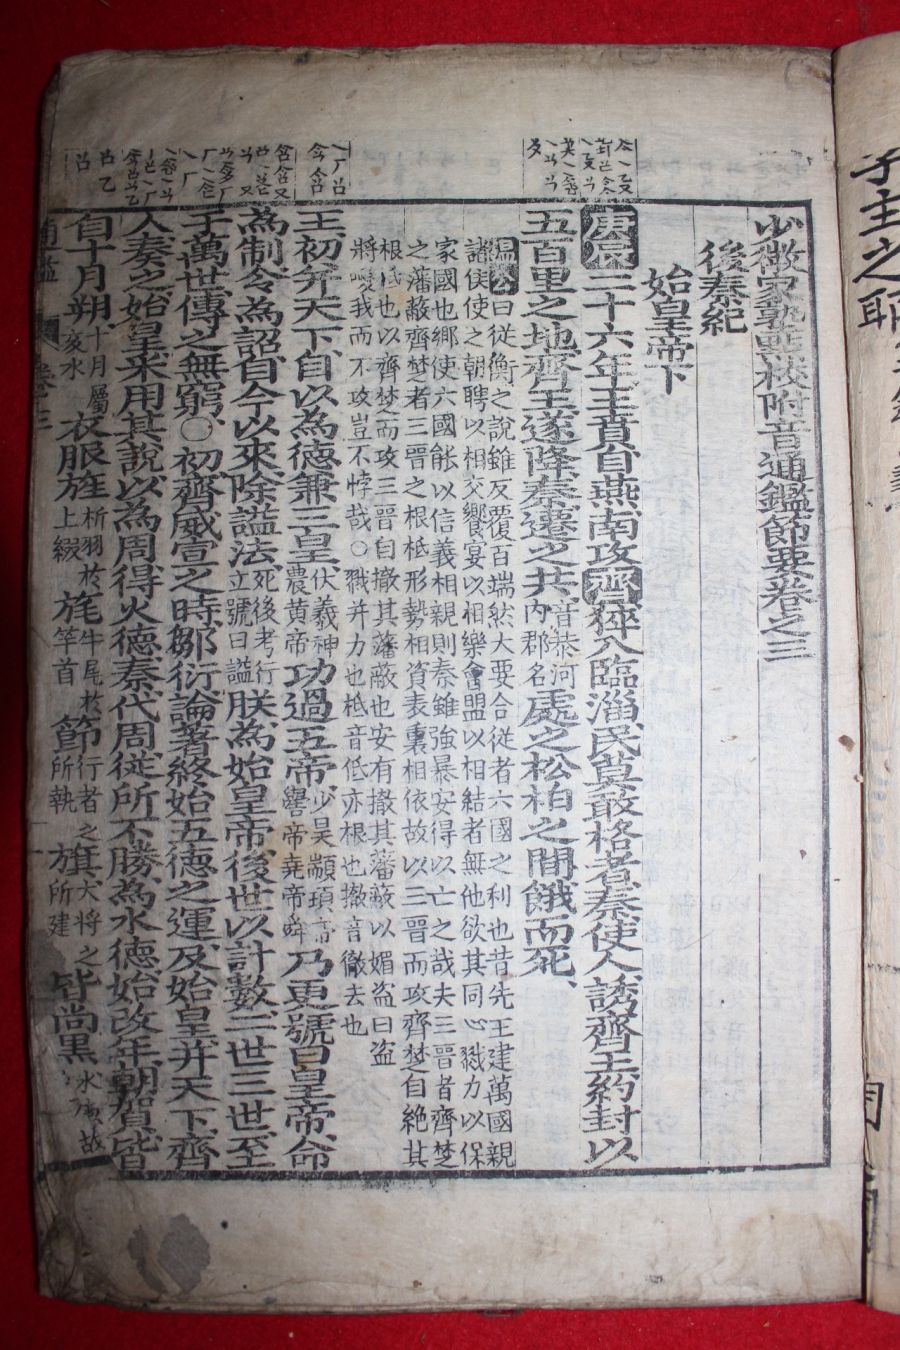 少微家塾點校附音通鑑節要卷之三
後秦紀
始皇帝下
庚辰二十六年、王賁自燕南攻齊、猝入臨淄、民莫敢格者、秦使人誘齊王、約封以
五百里之地、齊王遂降、秦遷之共音恭河內郡名處之松柏之間、餓而死、
溫公曰從衡之說雖反覆百端然大要合從者六國之利也昔先王建萬國親
諸侯使之朝聘以相交饗宴以相樂會盟以相結者無他欲其同心戮力以保
家國也鄉使六國能以信義相親則秦雖強暴安得以亡之哉夫三晉者齊楚
之藩蔽齊楚者三晉之根柢形勢相資表裏相依故以三晉而攻齊楚自絕其
根柢也以齊楚而攻三晉自撤其藩蔽也安有撤其藩蔽以媚盜曰盜
將愛我而不攻豈不悖哉○戮并力也柢音低亦根也撤音徹去也
王初并天下、自以為德兼三皇、伏羲神農黃帝功過五帝、少昊顓頊帝嚳帝堯帝舜乃更號曰皇帝、命
為制、令為詔、自今以來、除謚法、死後考行立號曰謚朕為始皇帝、後世以計數、二世三世、至
于萬世、傳之無窮、○初齊威宣之時、鄒衍論著終始五德之運、及始皇并天下、齊
人奏之、始皇采用其說、以為周得火德、秦代周、從所不勝、為水德、始改年、朝賀皆
自十月朔、十月屬亥水衣服旌析羽於上綴旄牛尾於竿首節行者之所執旗大将之所建皆尚黑、水德故
子主之耶